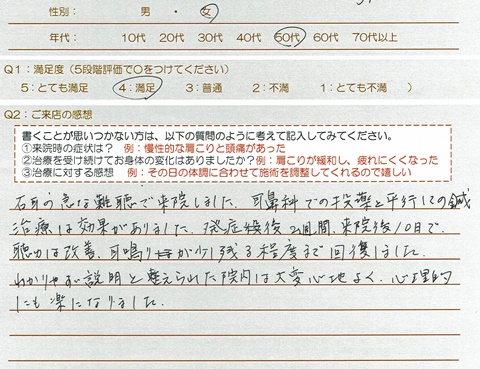 性別： 男 ・ 女
年代： 10代 20代 30代 40代 50代 60代 70代以上
Q1：満足度（5段階評価で○をつけてください）
5：とても満足 4：満足 3：普通 2：不満 1：とても不満 ）
Q2：ご来店の感想
書くことが思いつかない方は、以下の質問のように考えて記入してみてください。
①来院時の症状は？ 例：慢性的な肩こりと頭痛があった
②治療を受け続けてお身体の変化はありましたか？例：肩こりが緩和し、疲れにくくなった
③治療に対する感想 例：その日の体調に合わせて施術を調整してくれるので嬉しい
右耳の急な難聴で来院しました。耳鼻科での投薬と平行しての鍼
治療は効果がありました。発症後2週間、来院後10日で、
聴力は改善、耳鳴りが少し残る程度まで回復しました。
わかりやすい説明と整えられた院内は大変心地よく、心理的
にも楽になりました。